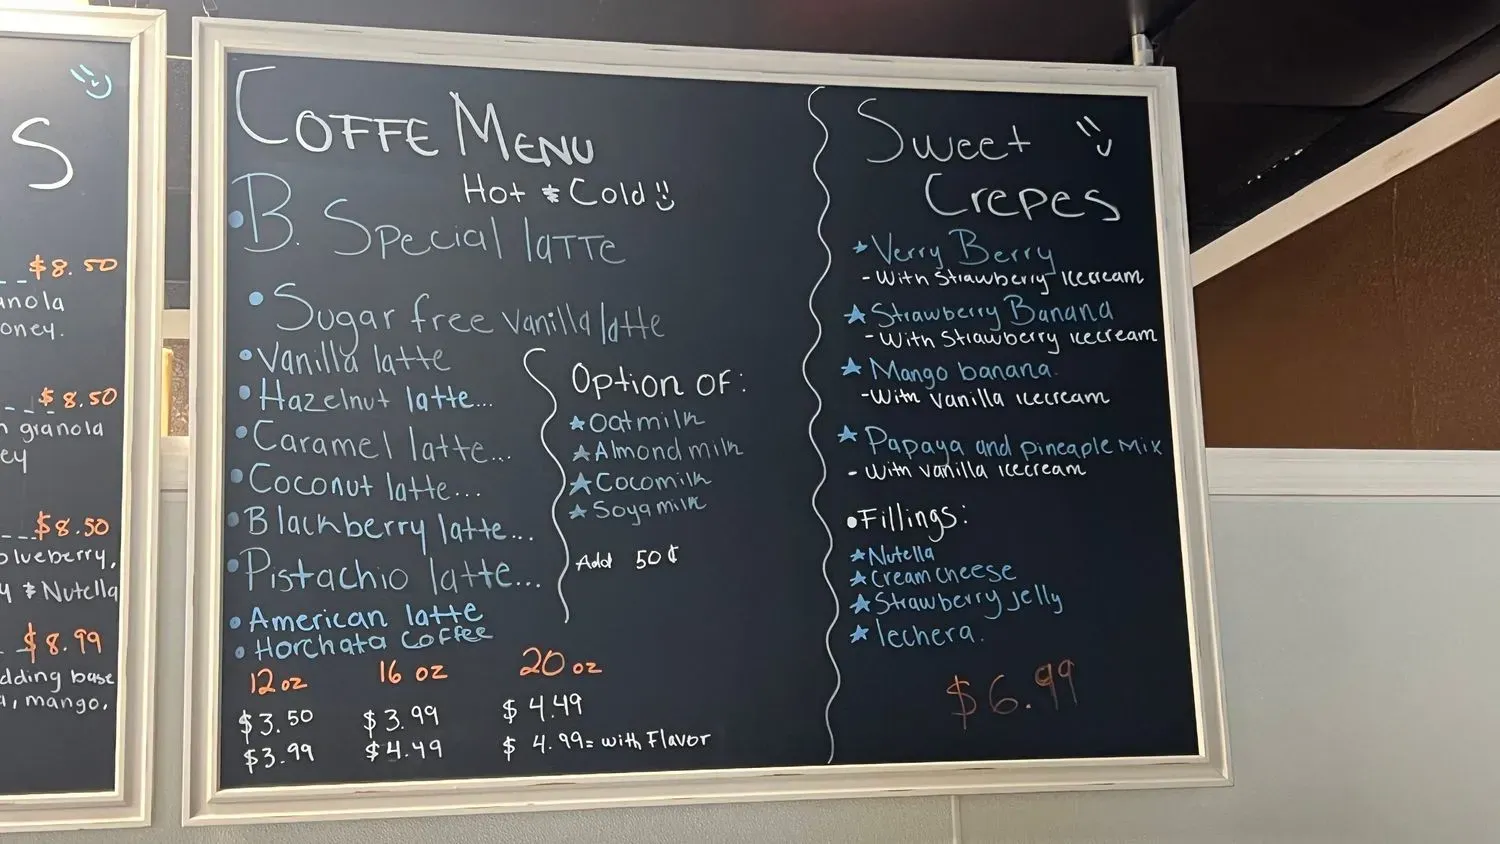 S
$8.50
anola
oney.
$8.50
granola
ey
$8.50
blueberry,
y & Nutella
$8.99
dding base
, mango,
COFFE MENU
Hot & Cold
• B. Special latte
• Sugar free vanilla latte
• Vanilla latte
• Hazelnut latte...
• Caramel latte...
• Coconut latte...
• Blackberry latte...
• Pistachio latte...
• American latte
• Horchata Coffee
Option of:
★ Oatmilk
★ Almond milk
★ Cocomilk
★ Soyamilk
Add 50¢
12 oz 16 oz 20 oz
$3.50 $3.99 $4.49
$3.99 $4.49 $4.99= with Flavor
Sweet
Crepes
★ Verry Berry
- With Strawberry Icecream
★ Strawberry Banana
- With Strawberry icecream
★ Mango banana.
- With vanilla icecream
★ Papaya and pineaple Mix
- With vanilla icecream
• Fillings:
★ Nutella
★ Cream cheese
★ Strawberry jelly
★ lechera.
$6.99